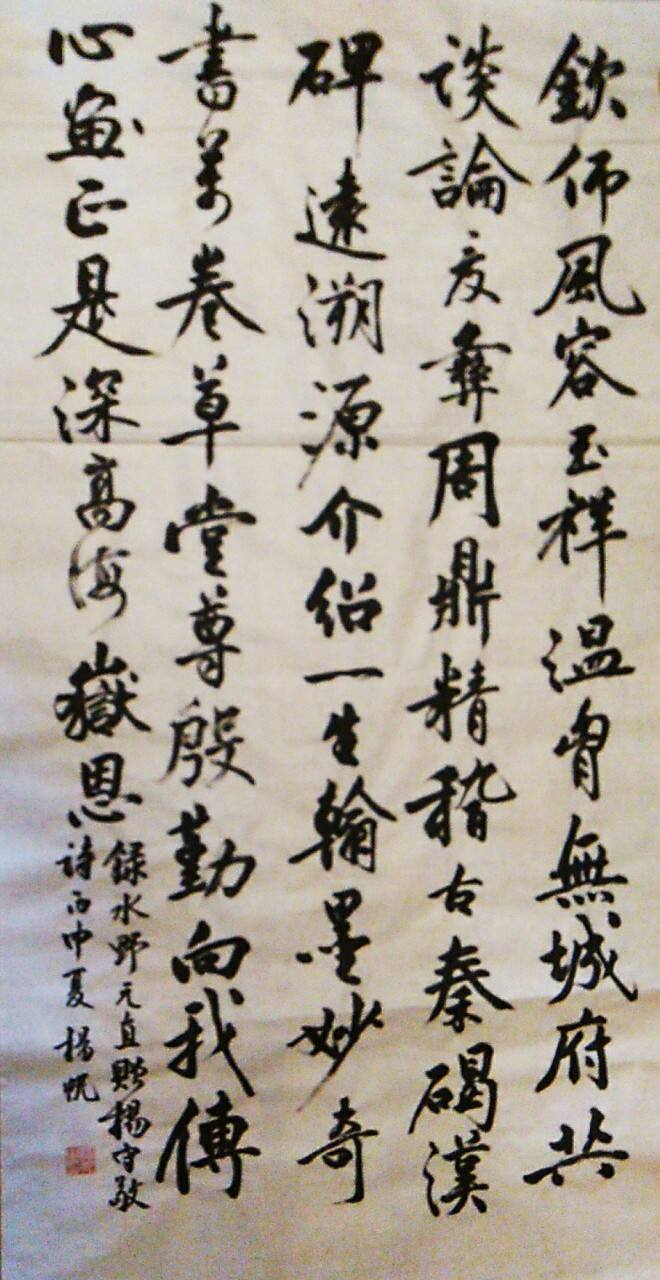 欽師風容玉祥温胷無城府共
談論夏彝周鼎精稽古秦碣漢
碑遠溯源介紹一生翰墨妙奇
書萬卷草堂尊殷勤向我傳
心畫正是深高海嶽恩
録水野元直贈楊守敬
詩丙申夏楊